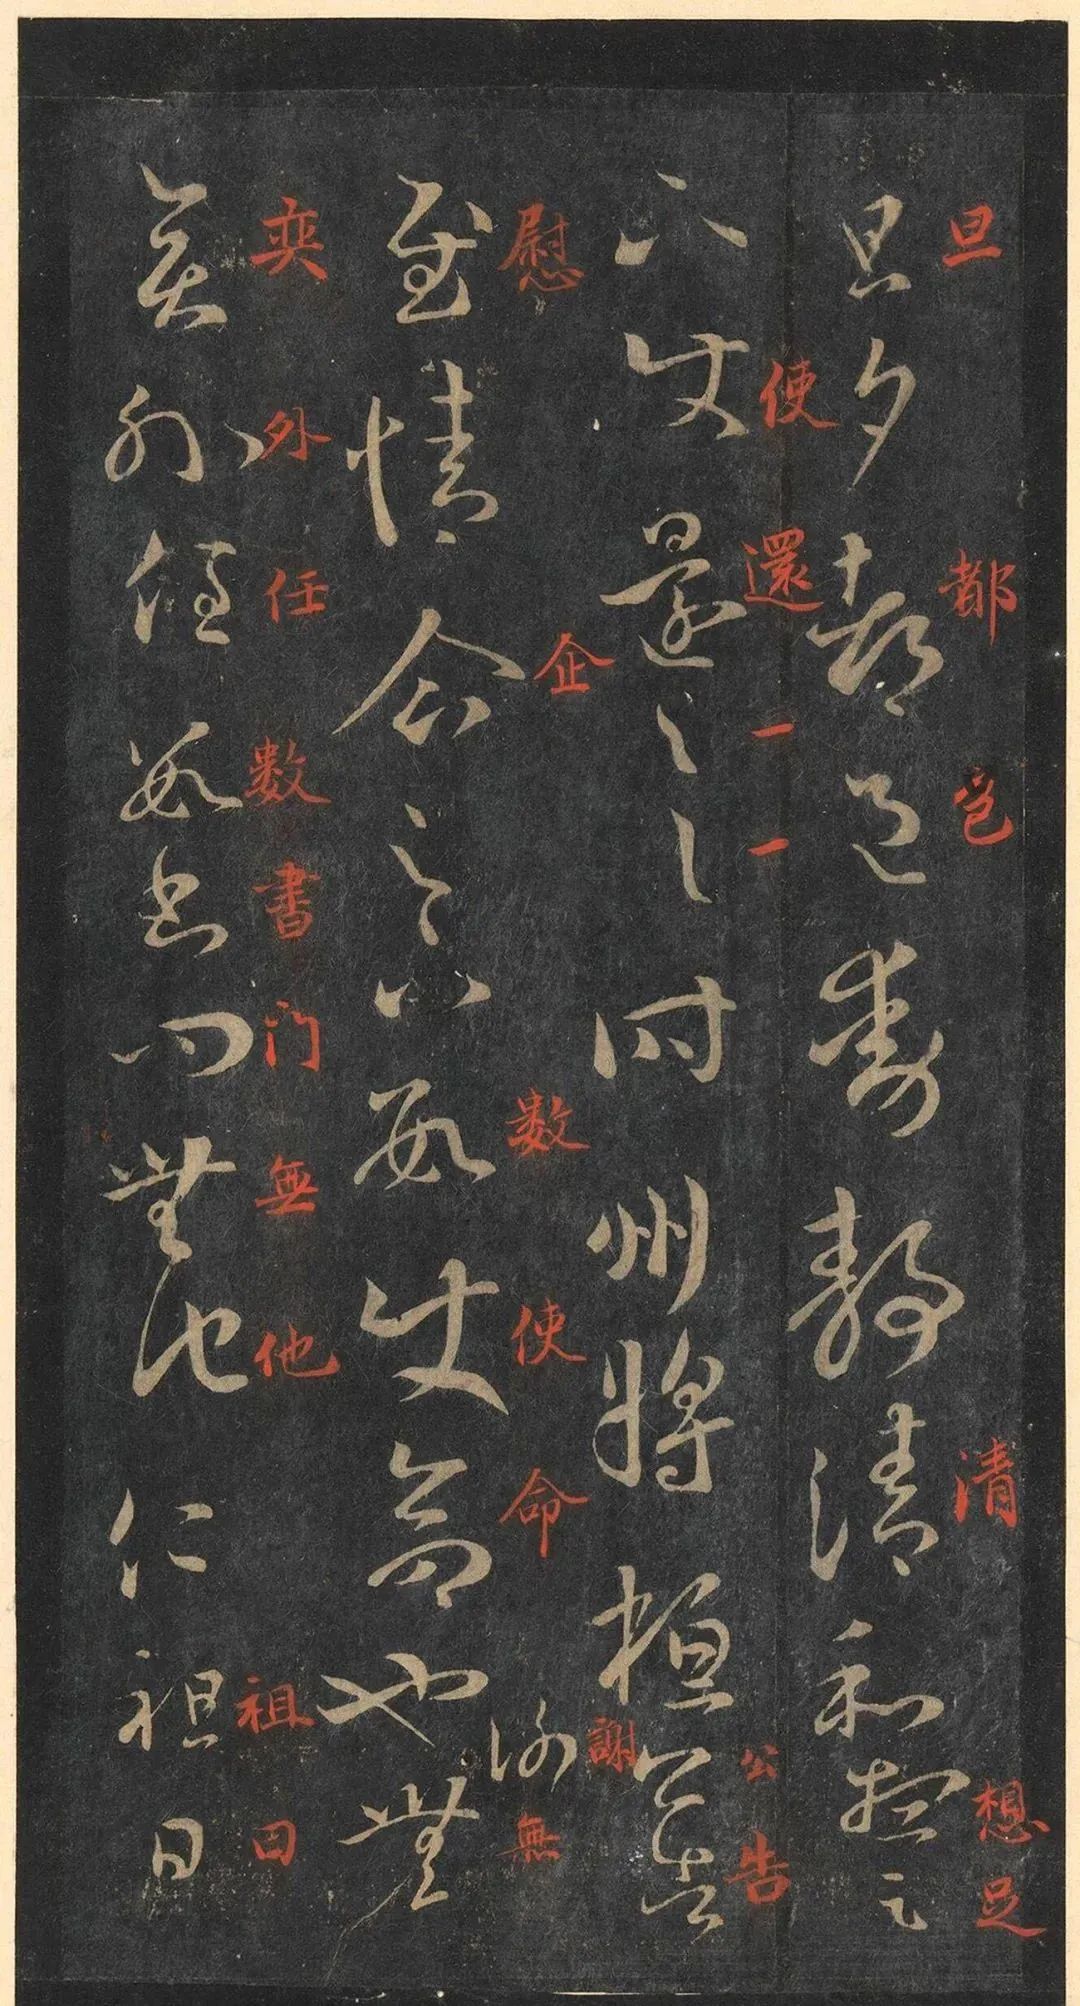 旦都邑清想足
旦夕都邑動靜清和想足
使還一一公告
下使還一一時州將桓公告
慰企數使命謝無
慰情企足下數使命也謝無
奕外任數書门無他祖日
奕外任數書問無他仁祖日